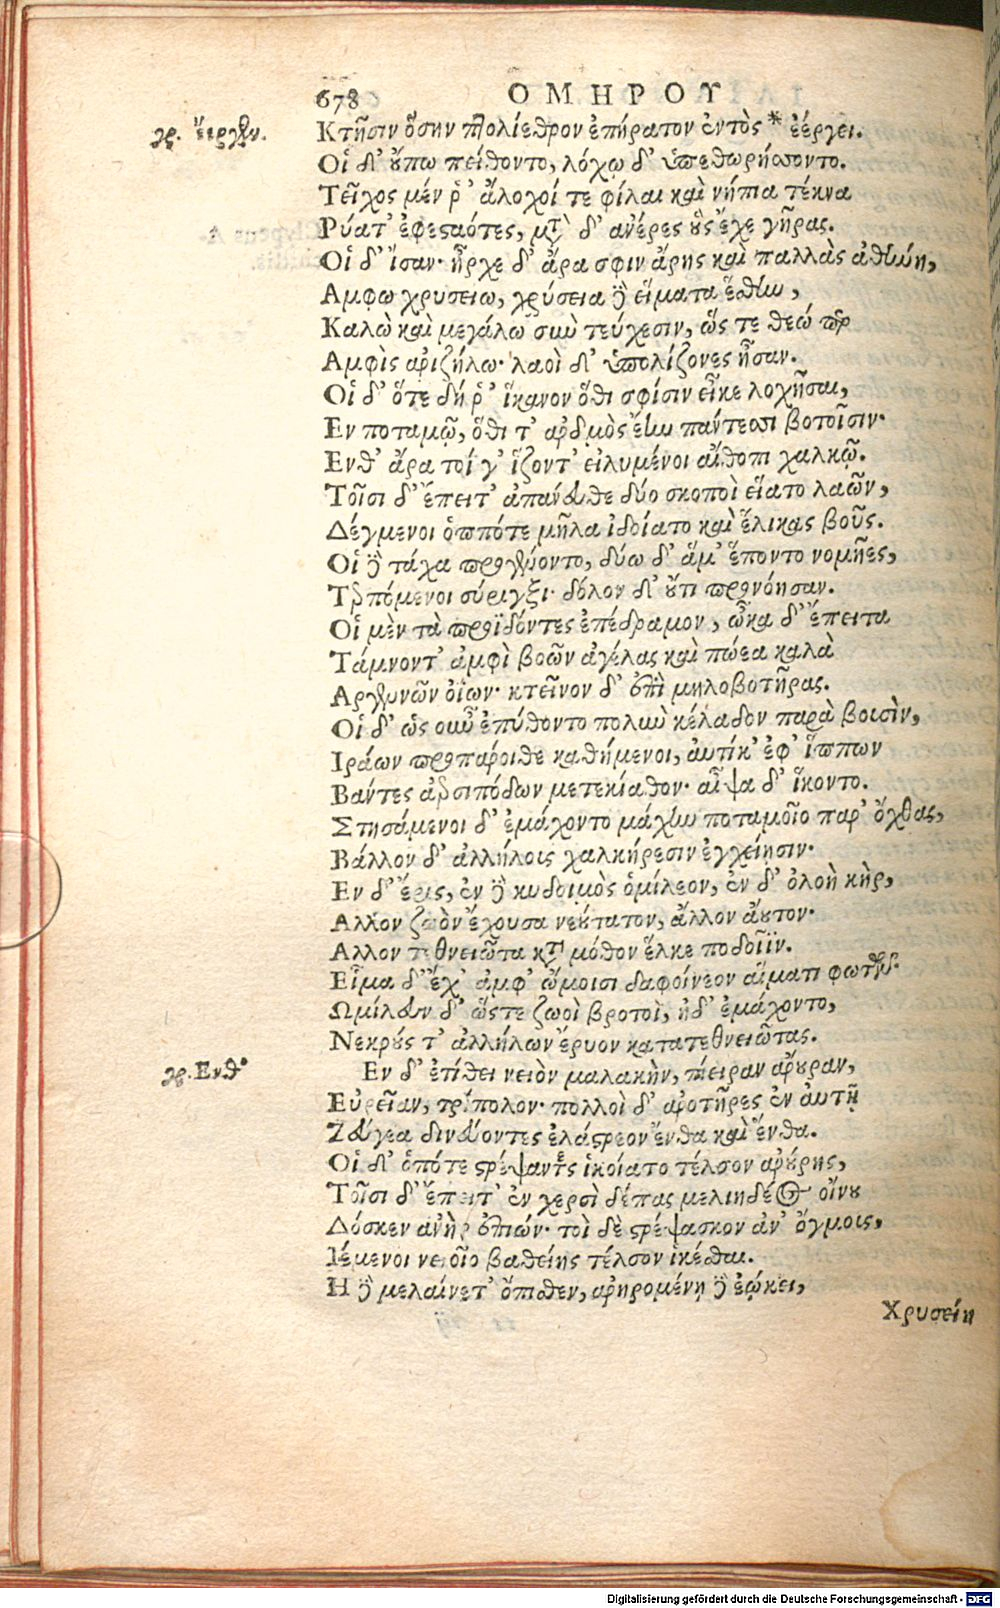 678 ΟΜΗΡΟΥ
γρ. ἔεργεν.
Κτῆσιν ὅσην πτολίεθρον ἐπήρατον ἐντὸς * ἐέργει.
Οἱ δ' οὔπω πείθοντο, λόχῳ δ' ὑπεθωρήσσοντο.
Τεῖχος μέν ῥ' ἄλοχοί τε φίλαι καὶ νήπια τέκνα
Ρύατ' ἐφεσταότες, μετὰ δ' ἀνέρες οὓς ἔχε γῆρας.
Οἱ δ' ἴσαν· ἦρχε δ' ἄρα σφιν ἄρης καὶ παλλὰς ἀθήνη,
Αμφω χρυσείω, χρύσεια δὲ εἵματα ἕσθην,
Καλὼ καὶ μεγάλω σὺν τεύχεσιν, ὥς τε θεώ περ
Αμφὶς ἀριζήλω· λαοὶ δ' ὑπολίζονες ἦσαν.
Οἱ δ' ὅτε δή ῥ' ἵκανον ὅθι σφίσιν εἶκε λοχῆσαι,
Εν ποταμῷ, ὅθι τ' ἀρδμὸς ἔην πάντεσσι βοτοῖσιν·
Ενθ' ἄρα τοί γ' ἵζοντ' εἰλυμένοι αἴθοπι χαλκῷ.
Τοῖσι δ' ἔπειτ' ἀπάνευθε δύο σκοποὶ εἵατο λαῶν,
Δέγμενοι ὁππότε μῆλα ἰδοίατο καὶ ἕλικας βοῦς.
Οἱ δὲ τάχα προγένοντο, δύω δ' ἅμ' ἕποντο νομῆες,
Τερπόμενοι σύριγξι· δόλον δ' οὔτι προνόησαν.
Οἱ μὲν τὰ προϊδόντες ἐπέδραμον, ὦκα δ' ἔπειτα
Τάμνοντ' ἀμφὶ βοῶν ἀγέλας καὶ πώεα καλὰ
Αργεννῶν ὀΐων· κτεῖνον δ' ἐπὶ μηλοβοτῆρας.
Οἱ δ' ὡς οὖν ἐπύθοντο πολὺν κέλαδον παρὰ βουσὶν,
Ιράων προπάροιθε καθήμενοι, αὐτίκ' ἐφ' ἵππων
Βάντες ἀερσιπόδων μετεκίαθον· αἶψα δ' ἵκοντο.
Στησάμενοι δ' ἐμάχοντο μάχην ποταμοῖο παρ' ὄχθας,
Βάλλον δ' ἀλλήλοις χαλκήρεσιν ἐγχείησιν·
Εν δ' ἔρις, ἐν δὲ κυδοιμὸς ὁμίλεον, ἐν δ' ὀλοὴ κὴρ,
Αλλον ζωὸν ἔχουσα νεούτατον, ἄλλον ἄουτον·
Αλλον τεθνειῶτα κατὰ μόθον ἕλκε ποδοιῒν.
Εἷμα δ' ἔχ' ἀμφ' ὤμοισι δαφοίνεον αἵματι φωτῶν·
Ωμίλευν δ' ὥστε ζωοὶ βροτοὶ, ἠδ' ἐμάχοντο,
Νεκρούς τ' ἀλλήλων ἔρυον κατατεθνειῶτας.
γρ. Ενθ'
Εν δ' ἐτίθει νειὸν μαλακὴν, πίειραν ἄρουραν,
Εὐρεῖαν, τρίπολον· πολλοὶ δ' ἀροτῆρες ἐν αὐτῇ
Ζεύγεα δινεύοντες ἐλάστρεον ἔνθα καὶ ἔνθα.
Οἱ δ' ὁπότε στρέψαντες ἱκοίατο τέλσον ἀρούρης,
Τοῖσι δ' ἔπειτ' ἐν χερσὶ δέπας μελιηδέος οἴνου
Δόσκεν ἀνὴρ ἐπιών· τοὶ δὲ στρέψασκον ἀν' ὄγμοις,
Ιέμενοι νειοῖο βαθείης τέλσον ἱκέσθαι.
Η δὲ μελαίνετ' ὄπισθεν, ἀρηρομένῃ δὲ ἐῴκει,
Χρυσείη
Digitalisierung gefördert durch die Deutsche Forschungsgemeinschaft - DFG